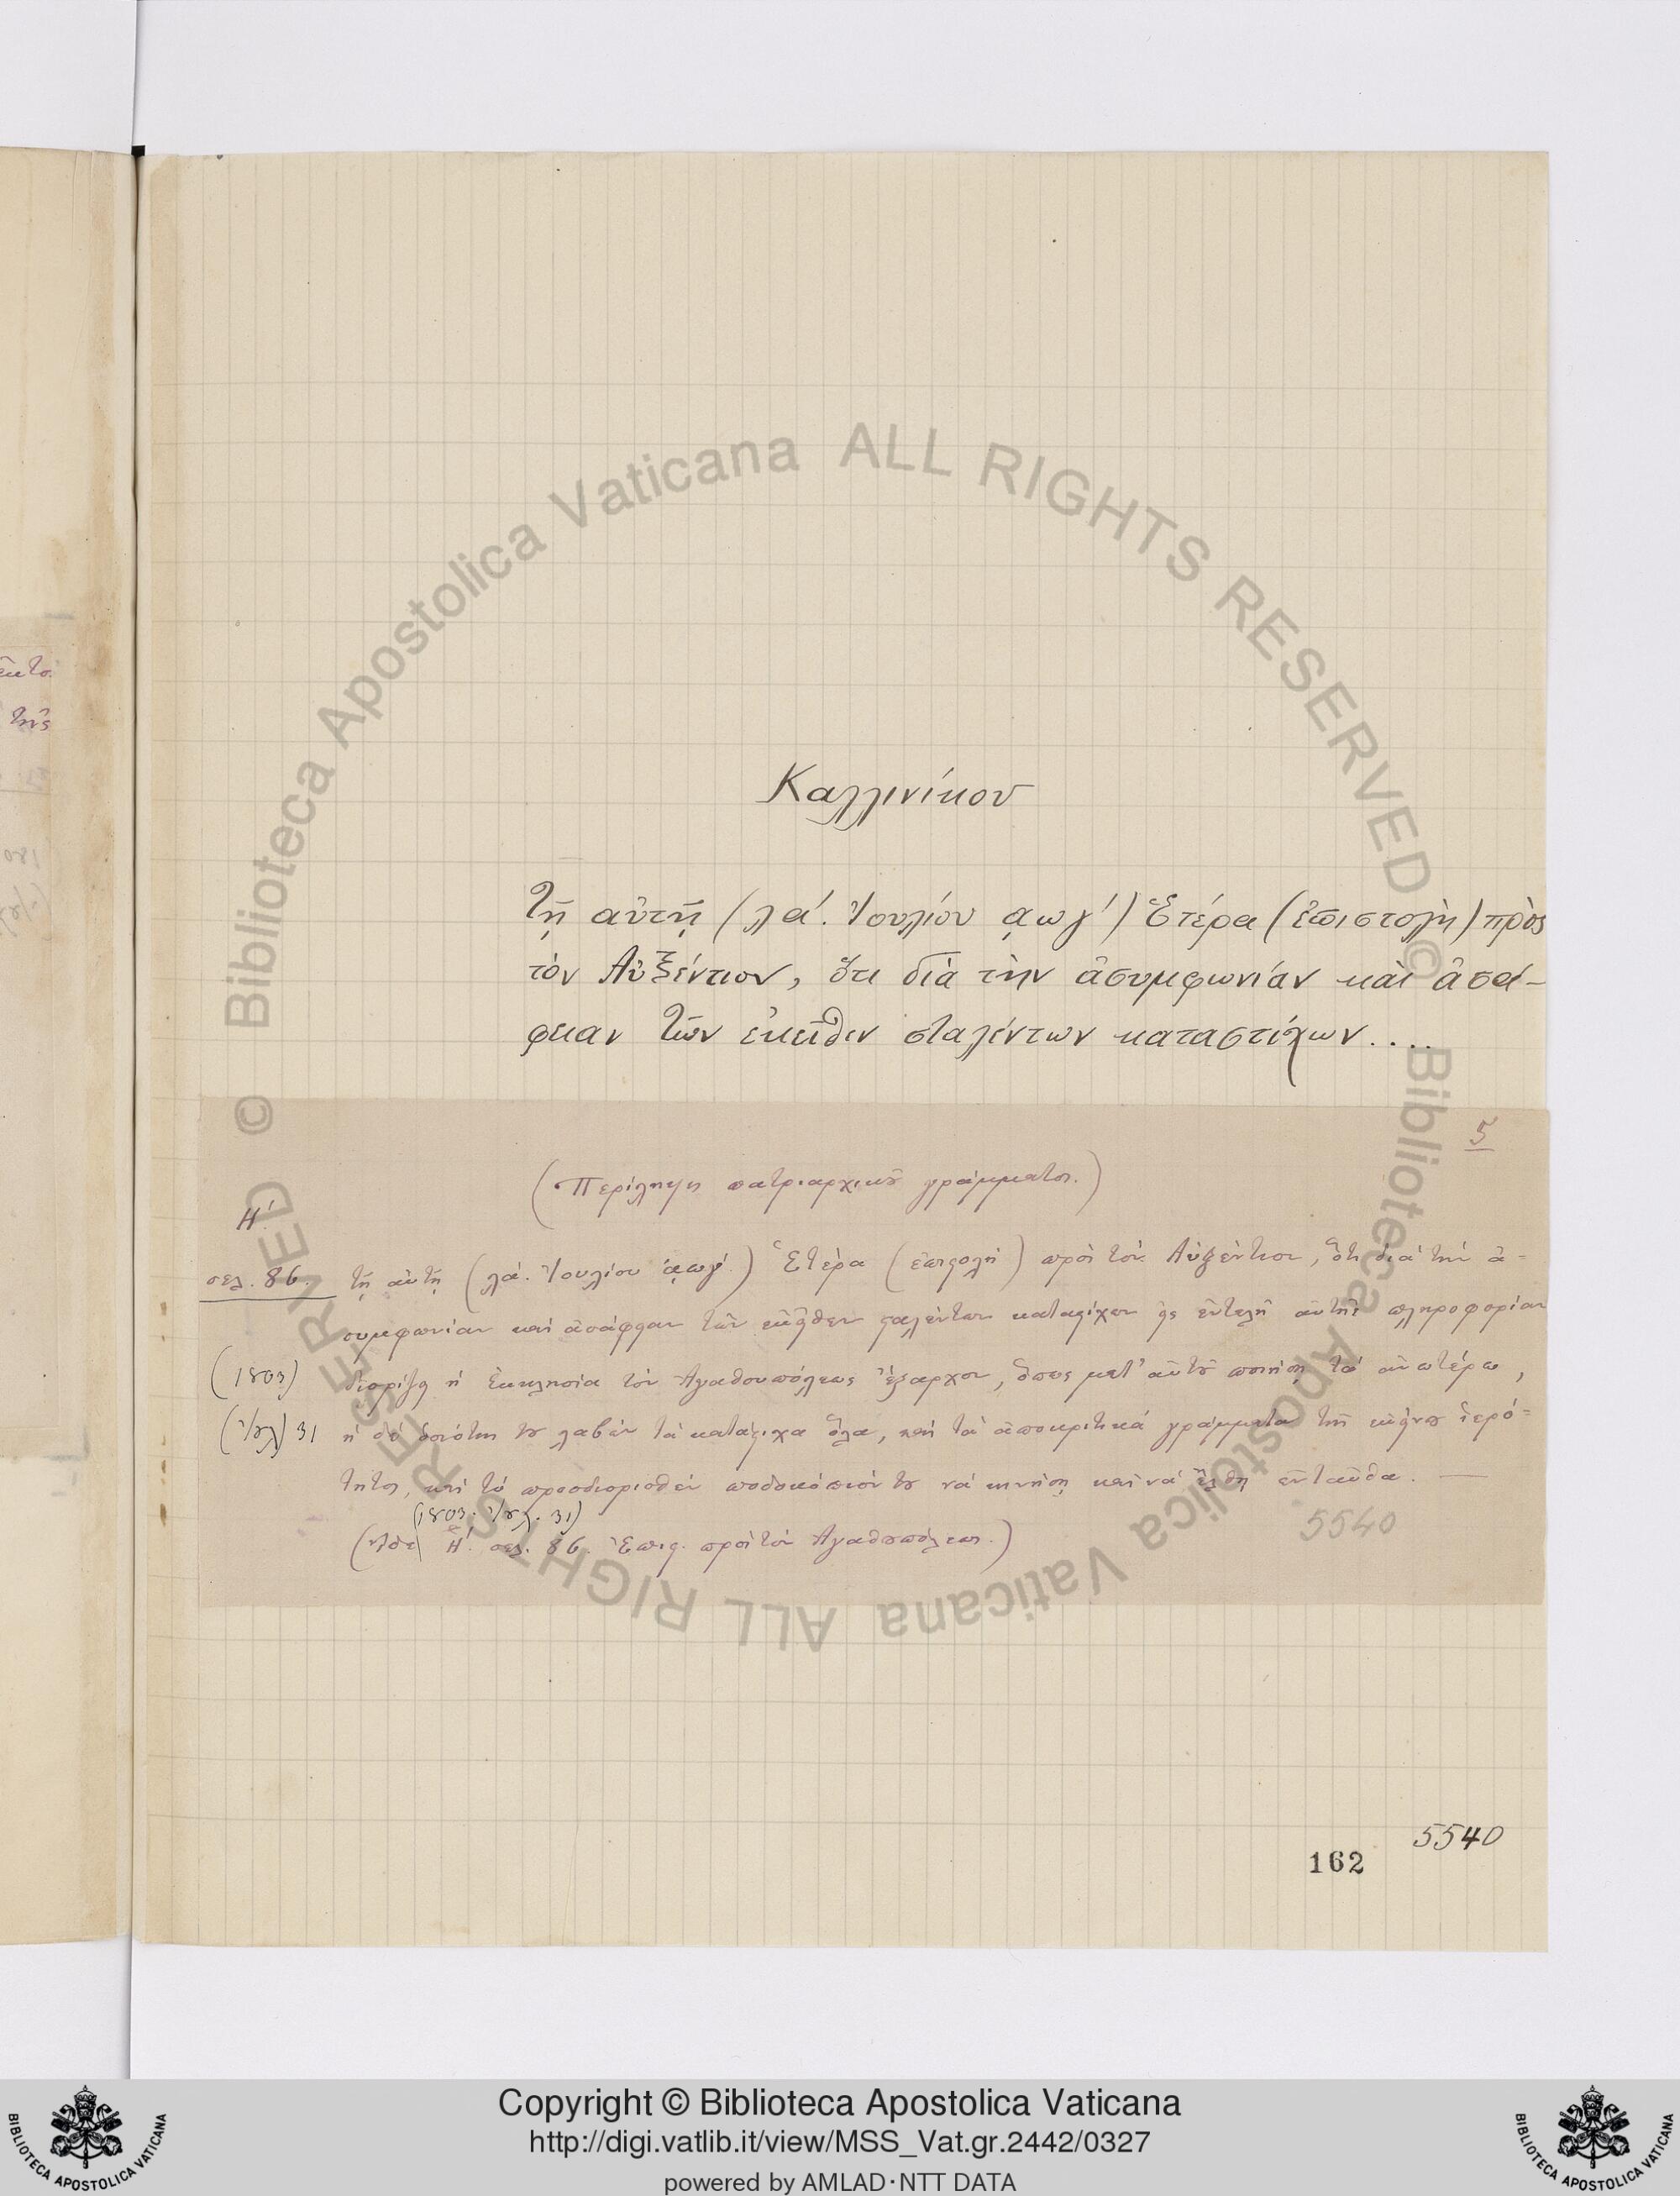 Καλλινίκου
Τῇ αὐτῇ (λα΄. Ἰουλίου ͵αωγ΄) Ἑτέρα (ἐπιστολὴ) πρὸς
τὸν Αὐξέντιον, ὅτι διὰ τὴν ἀσυμφωνίαν καὶ ἀσά-
φειαν τῶν ἐκεῖθεν σταλέντων καταστίχων....
5
(Περίληψη πατριαρχικοῦ γράμματος.)
Η΄.
σελ. 86. τῇ αὐτῇ (λά. Ἰουλίου ͵αωγ΄.) Ἑτέρα (ἐπιστολὴ) πρὸς τὸν Αὐξέντιον, ὅτι διὰ τὴν ἀ-
συμφωνίαν καὶ ἀσάφειαν τῶν ἐκεῖθεν σταλέντων καταστίχων εἰς ἐντελῆ αὐτῆς πληροφορίαν
(1803) διορίζει ἡ Ἐκκλησία τὸν Ἀγαθουπόλεως ἔξαρχον, ὅπως μετ᾽ αὐτοῦ ποιήσῃ τὰ ἀνωτέρω,
(Ἰουλ) 31 ἡ δὲ ὁσιότης του λαβὼν τὰ κατάστιχα ὅλα, καὶ τὰ ἀποκριτικὰ γράμματα τῆς ἐκείνου ἱερό-
τητος, καὶ τὸ προσδιορισθὲν ποδοκόπιόν του νὰ κινήσῃ καὶ νὰ ἔλθῃ ἐνταῦθα. —
(1803. Ἰουλ. 31)
(Ἴδε Η΄. σελ. 86. Ἐπιστ. πρὸς τὸν Ἀγαθουπόλεως.)
5540
5540
162
© Biblioteca Apostolica Vaticana ALL RIGHTS RESERVED © Biblioteca Apostolica Vaticana ALL RIGHTS RESERVED
Copyright © Biblioteca Apostolica Vaticana
http://digi.vatlib.it/view/MSS_Vat.gr.2442/0327
powered by AMLAD·NTT DATA
BIBLIOTECA APOSTOLICA VATICANA
BIBLIOTECA APOSTOLICA VATICANA